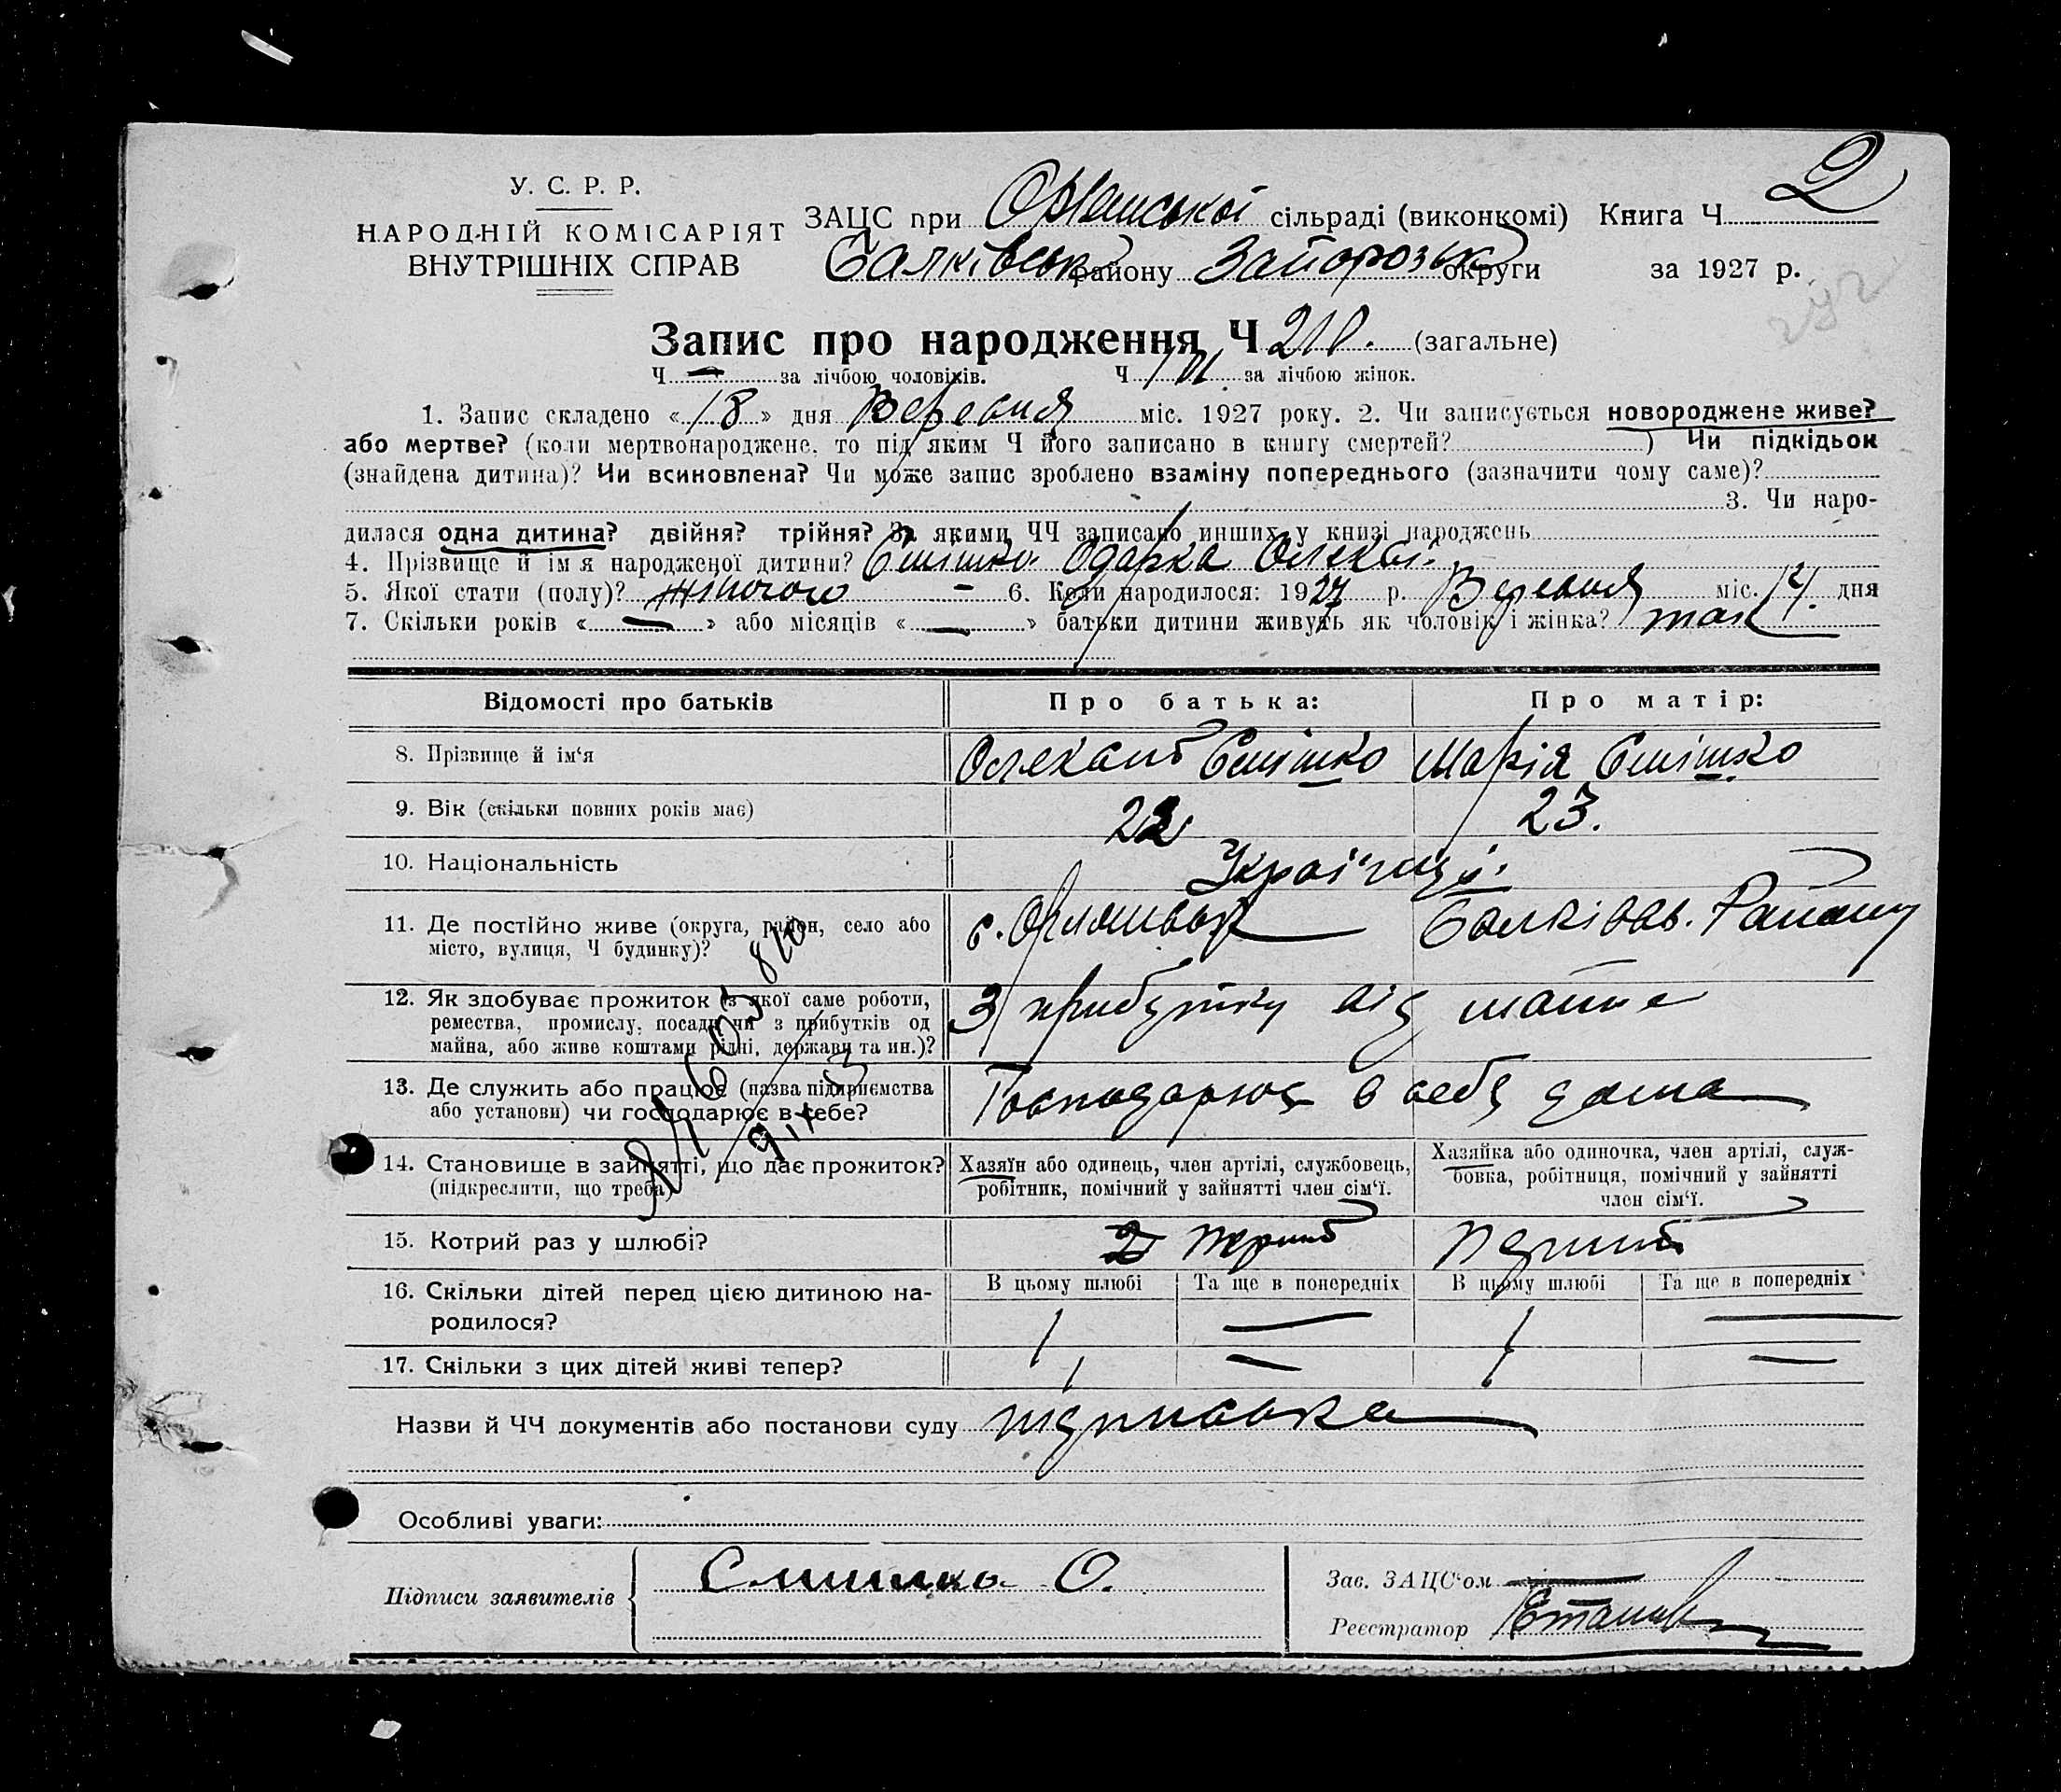 У. С. Р. Р.
НАРОДНІЙ КОМІСАРІЯТ
ВНУТРІШНІХ СПРАВ
ЗАЦС при сільраді (виконкомі) Книга Ч 2
Балківськ району Запорозьк округи за 1927 р.
Запис про народження Ч 210. (загальне)
Ч — за лічбою чоловіків. Ч 101. за лічбою жінок.
1. Запис складено «18» дня Вересня міс. 1927 року. 2. Чи записується новороджене живе?
або мертве? (коли мертвонароджене, то під яким Ч його записано в книгу смертей? ) Чи підкідьок
(знайдена дитина)? Чи всиновлена? Чи може запис зроблено взаміну попереднього (зазначити чому саме)?
3. Чи наро-
дилася одна дитина? двійня? трійня? За якими ЧЧ записано инших у книзі народжень
4. Прізвище й ім'я народженої дитини? Одарка Олекса.
5. Якої стати (полу)? жіночого – 6. Коли народилося: 1927 р. Вересня міс. 14. дня
7. Скільки років « — » або місяців « — » батьки дитини живуть як чоловік і жінка? так
Відомості про батьків
Про батька:
Про матір:
8. Прізвище й ім'я
Олександ Слішко
Марія Слішко
9. Вік (скільки повних років має)
22
23.
10. Національність
Українці.
11. Де постійно живе (округа, район, село або
місто, вулиця, Ч будинку)?
с. Балківс. Району
12. Як здобуває прожиток (з якої саме роботи,
ремества, промислу, посади чи з прибутків од
майна, або живе коштами рідні, держави та ин.)?
З прибутку від майна
13. Де служить або працює (назва підприємства
або установи) чи господарює в себе?
Господарює в себе дома
14. Становище в зайнятті, що дає прожиток?
(підкреслити, що треба)
Хазяїн або одинець, член артілі, службовець,
робітник, помічний у зайнятті член сім'ї.
Хазяйка або одиночка, член артілі, служ-
бовка, робітниця, помічний у зайнятті
член сім'ї.
15. Котрий раз у шлюбі?
перший
перший
16. Скільки дітей перед цією дитиною на-
родилося?
В цьому шлюбі
Та ще в попередніх
В цьому шлюбі
Та ще в попередніх
1 — 1 —
17. Скільки з цих дітей живі тепер?
1 — 1 —
Назви й ЧЧ документів або постанови суду
Особливі уваги:
Підписи заявителів
О.
Зав. ЗАЦС'ом
Реєстратор